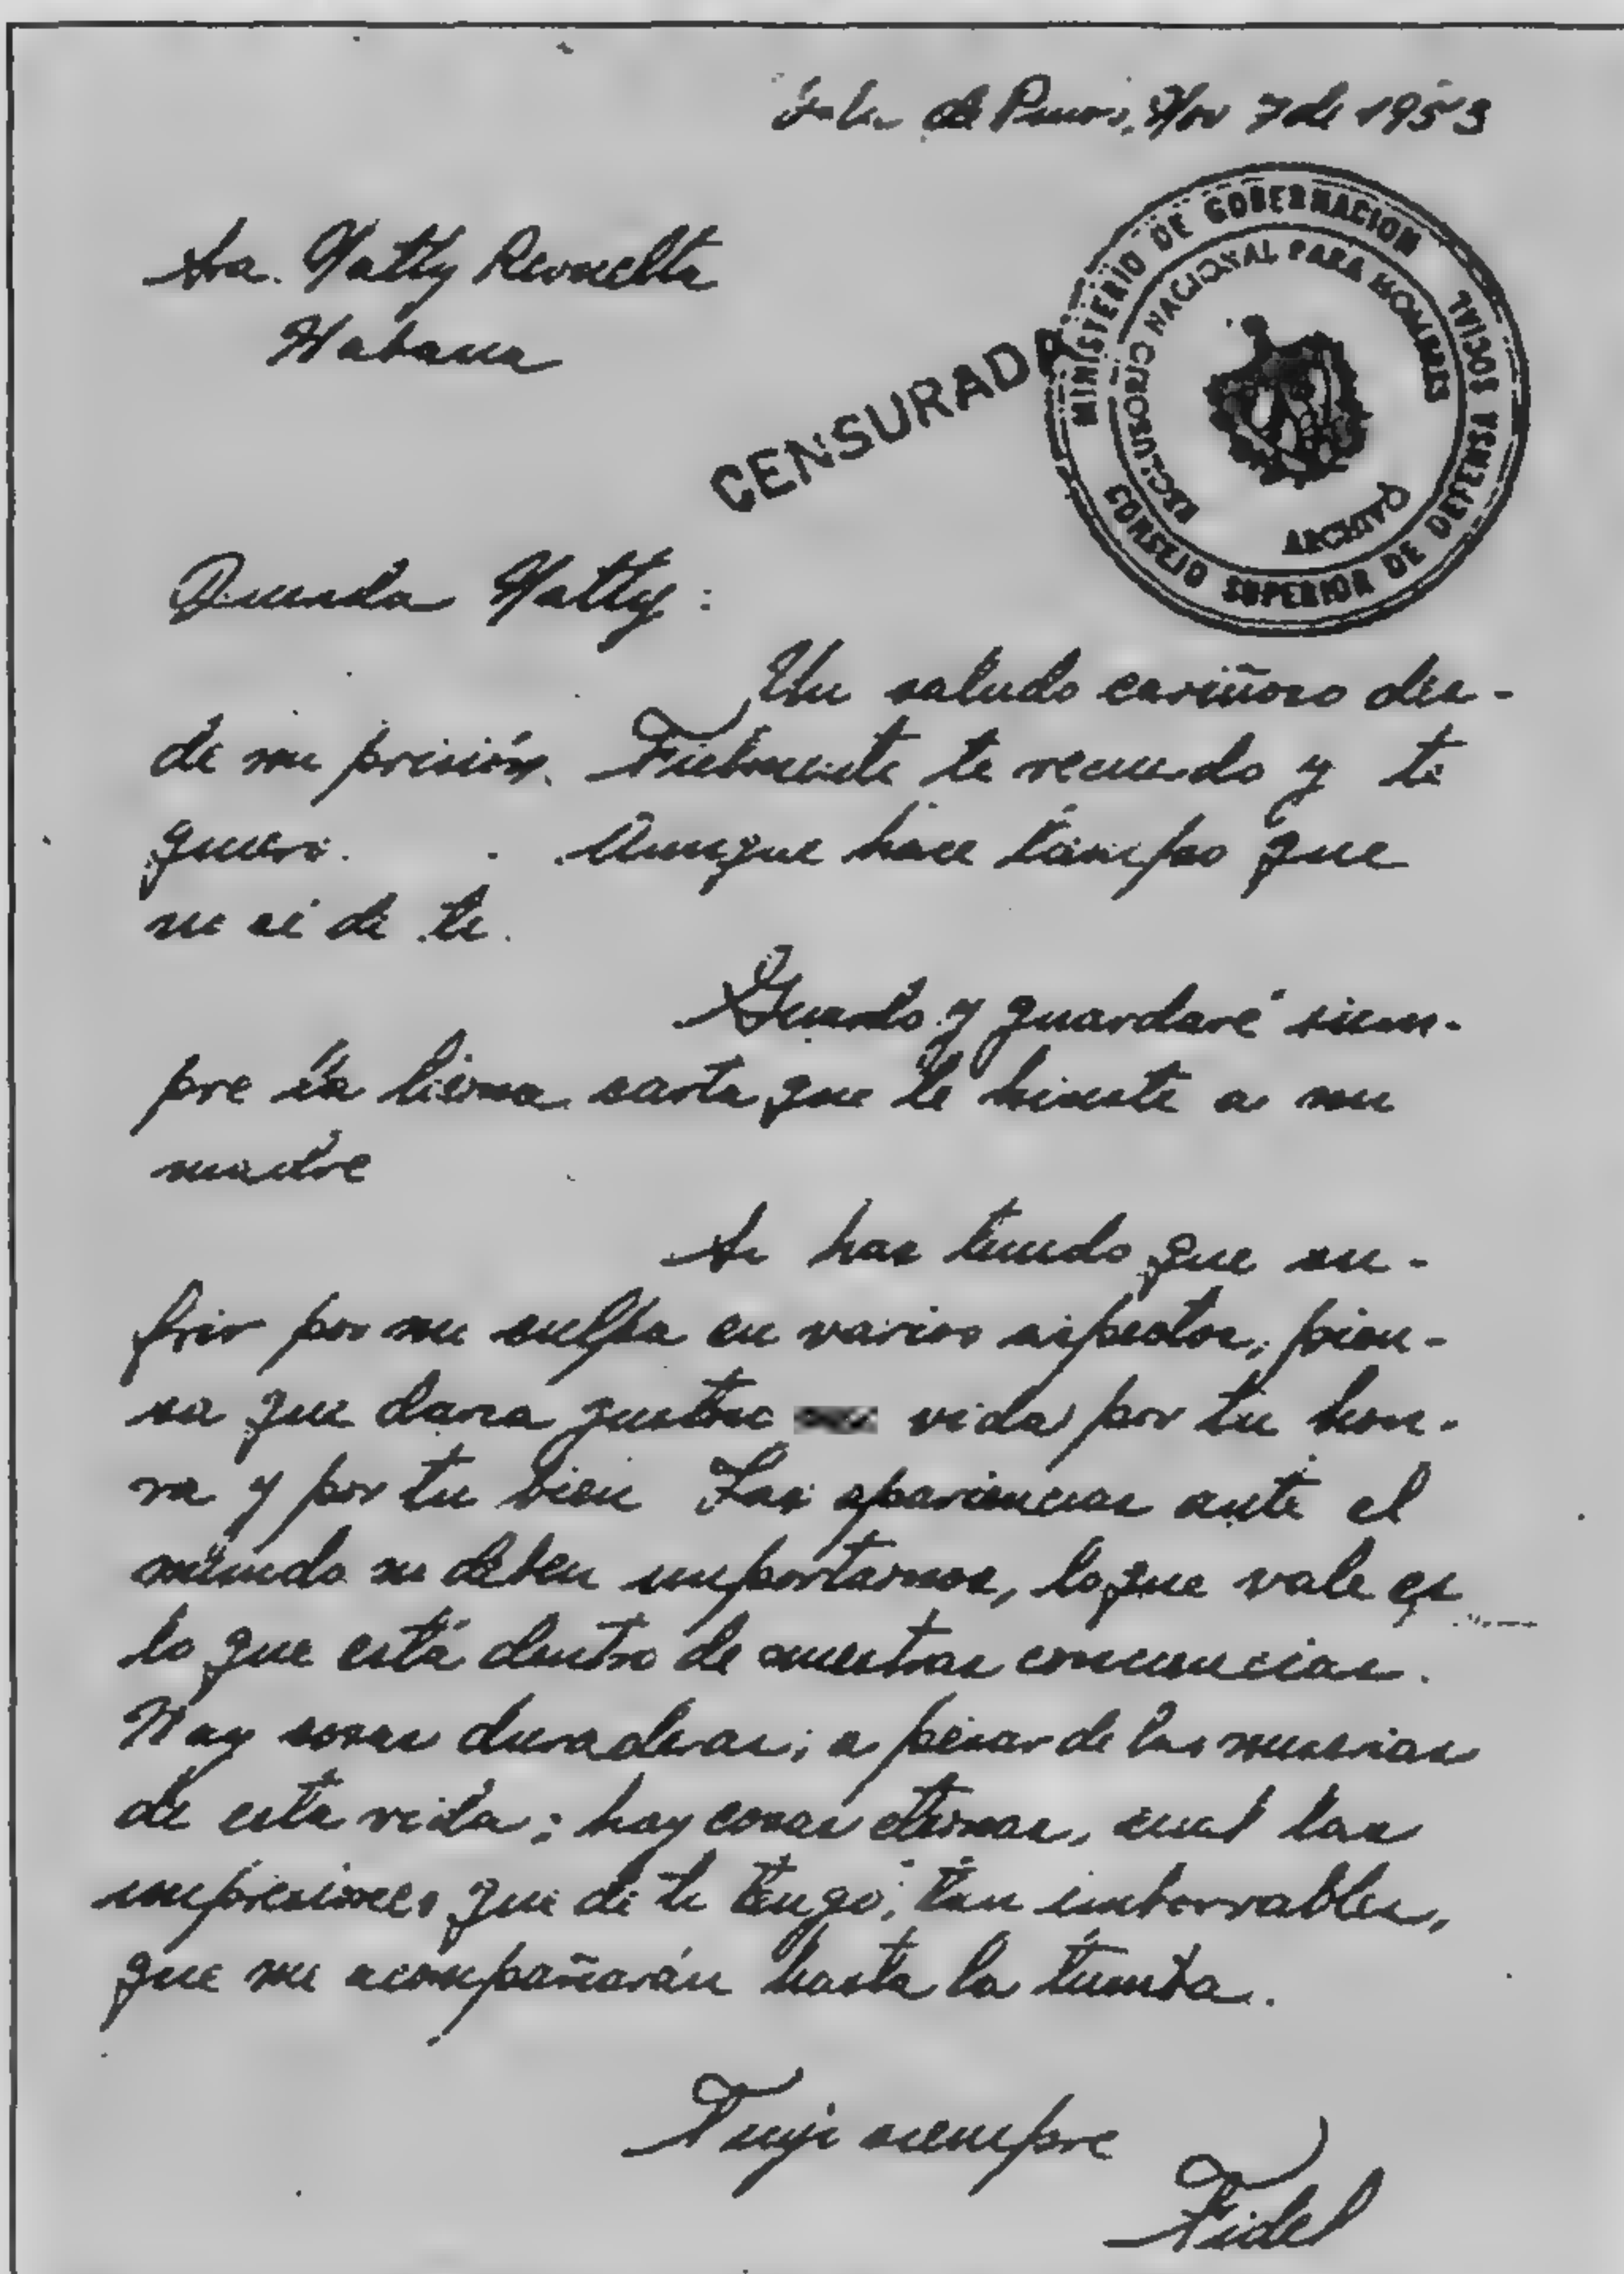 Isla de Pinos, Nov 7 de 1953
MINISTERIO DE GOBERNACION
CONSEJO SUPERIOR DE DEFENSA SOCIAL
RECLUSORIO NACIONAL PARA HOMBRES
ARCHIVO
Sra. Natty Revuelta
Habana
CENSURADA
Querida Natty:
Un saludo cariñoso des-
de mi prisión. Fielmente te recuerdo y te
quiero. Aunque hace tiempo que
no sé de ti.
Guardo y guardaré siem-
pre la tierna carta que le hiciste a mi
madre
Si has tenido que su-
frir por mi culpa en varios aspectos, pien-
sa que daría gustoso vida por tu hon-
ra y por tu bien Las apariencias ante el
mundo no deben importarnos, lo que vale es
lo que está dentro de nuestras conciencias.
Hay cosas duraderas, a pesar de las miserias
de esta vida; hay cosas eternas, cual las
impresiones que de ti tengo, tan imborrables,
que me acompañarán hasta la tumba.
Tuyo siempre
Fidel